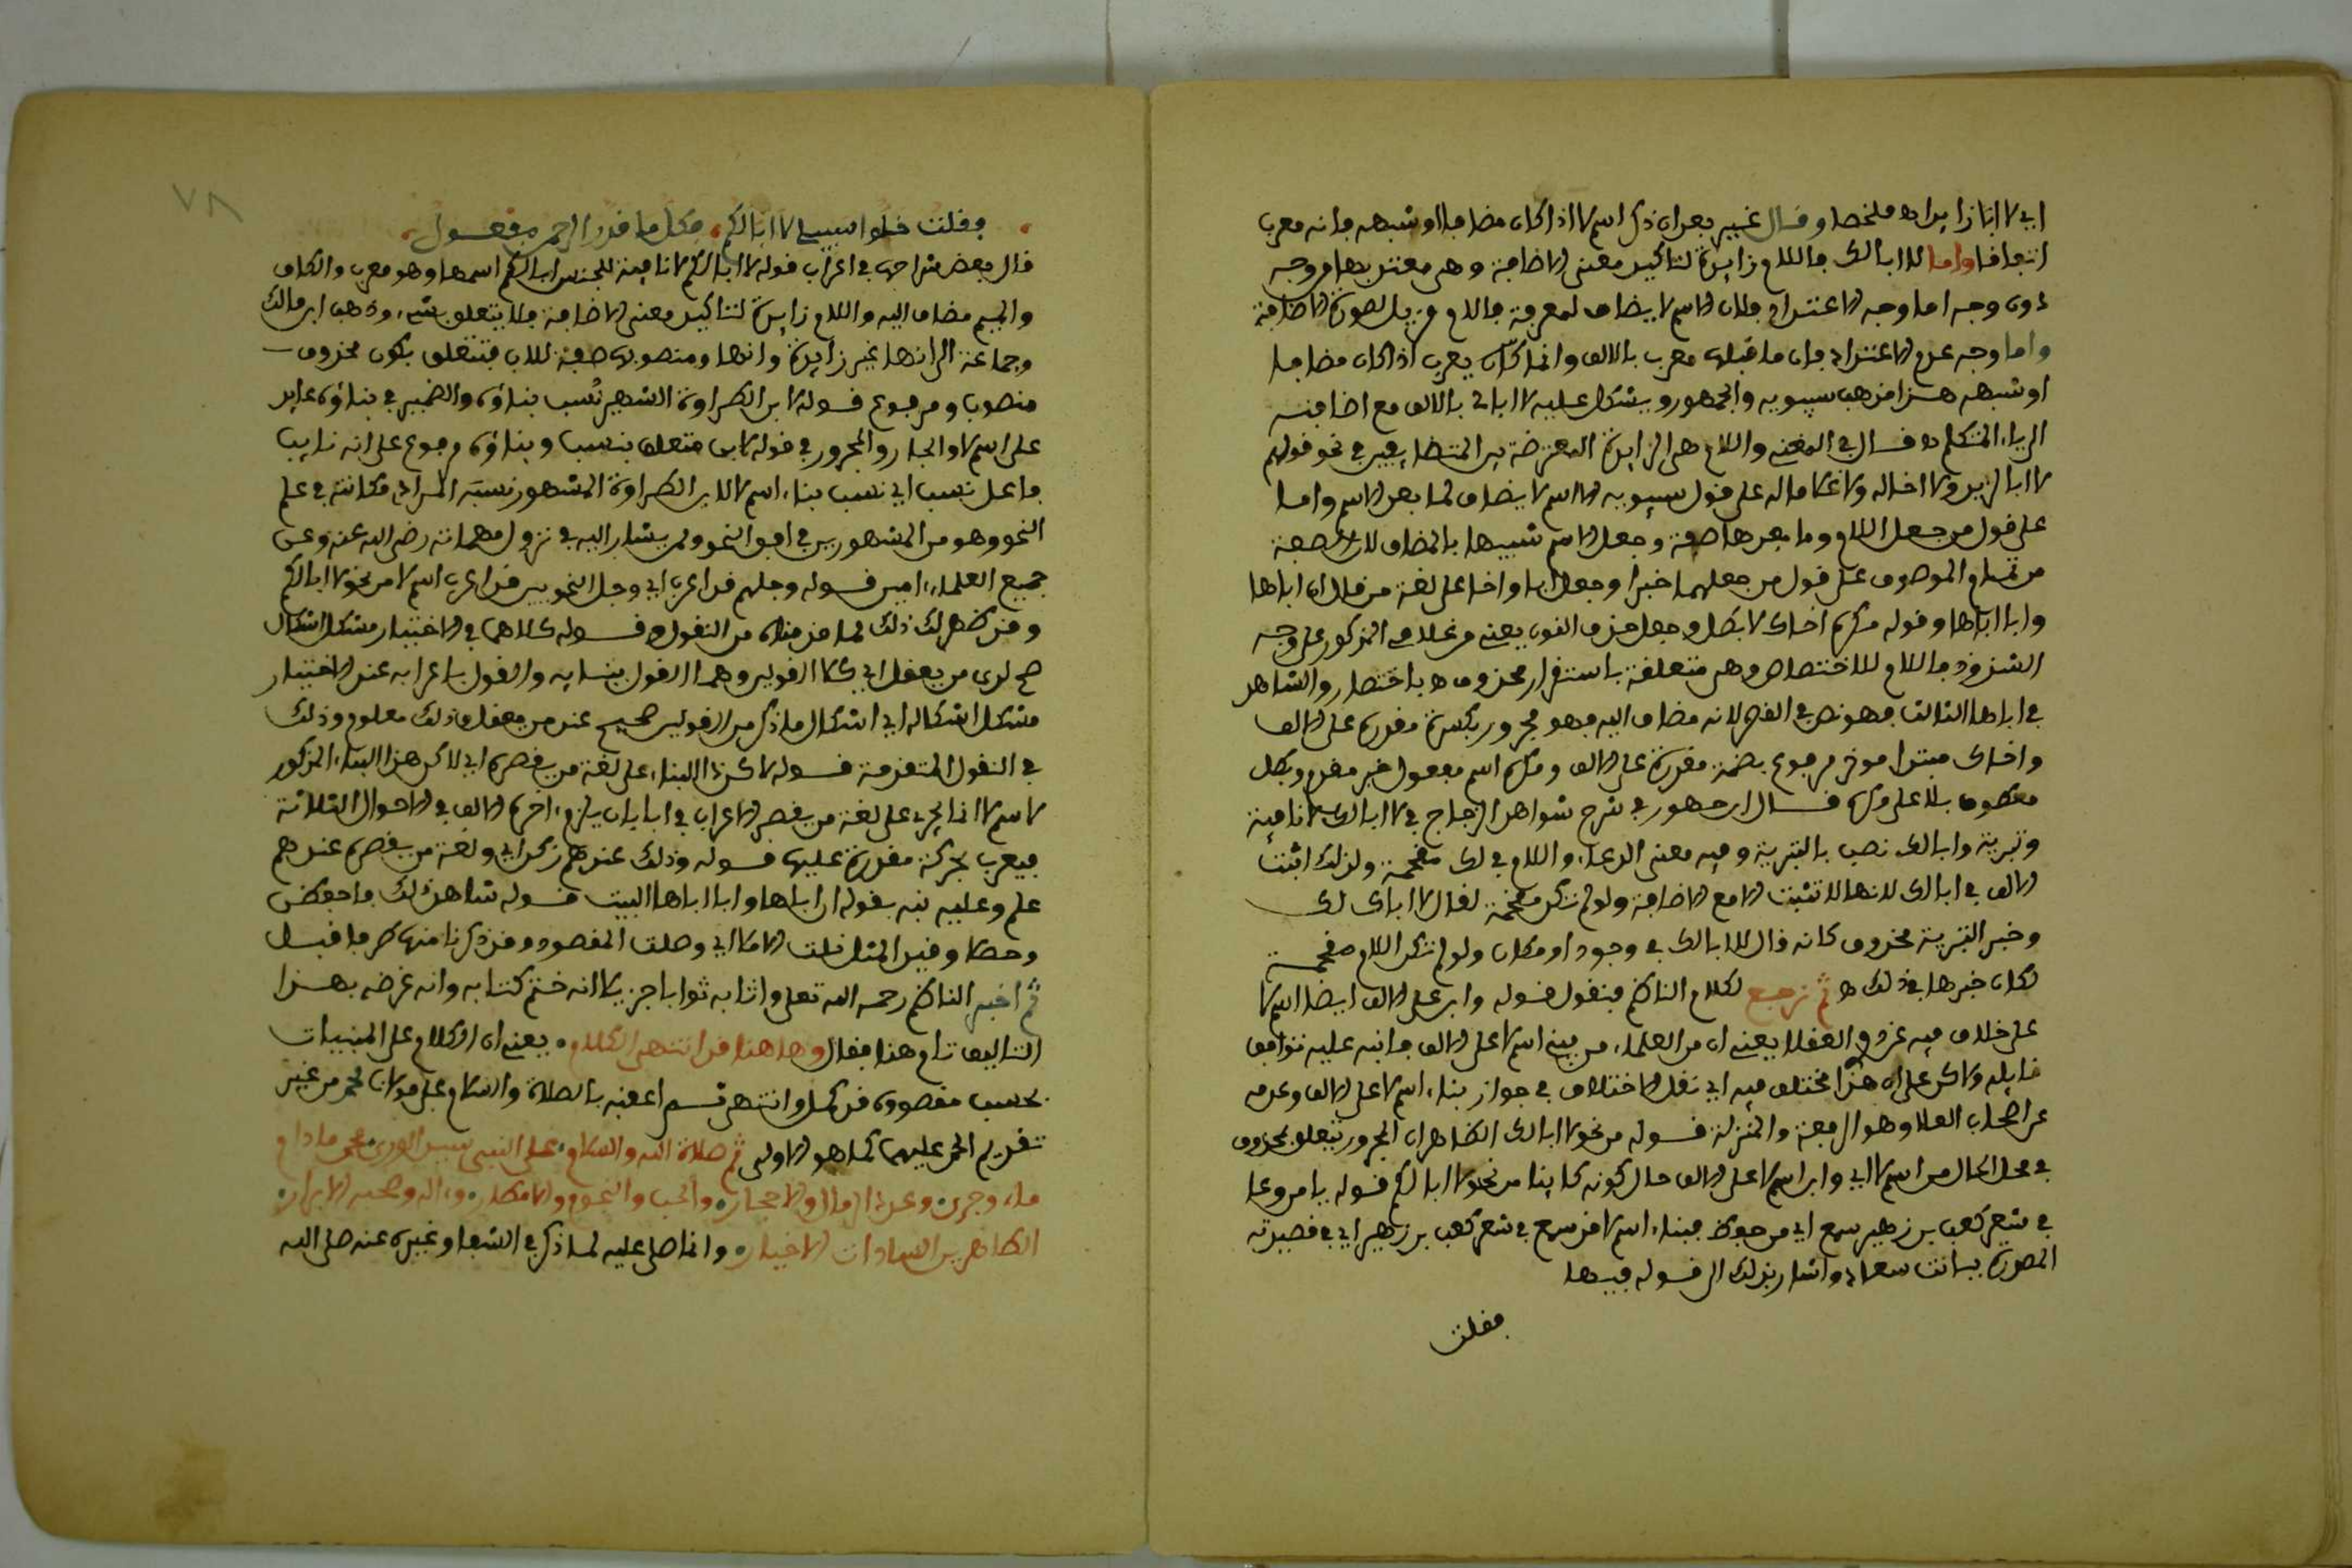 اي لا ابا زايد اه ملخصا وقال غيره بعد ان ذكر اسم لا اذا كان مضافا او شبهه فانه معرب
اتفاقا واما لا ابا لك فاللام زايدة لتاكيد معنى الاضافة وهي معتد بها من وجه
دون وجه اما وجه الاعتداد فلان الاسم لا يضاف لمعرفة فاللام مزيل لصورة الاضافة
واما وجه عدم الاعتداد فان ما قبلها معرب بالالف وانما كان يعرب اذا كان مضافا
او شبهه هذا مذهب سيبويه والجمهور ويشكل عليه لا ابا لي بالالف مع اضافته
الى ياء المتكلم اه قال في المغني واللام هي الزايدة المعترضة بين المتضايفين في نحو قولهم
لا ابا لزيد ولا اخا له ولا غلامي له على قول سيبويه ان اسم لا يضاف لما بعد الاسم واما
على قول من جعل اللام وما بعدها صفة وجعل الاسم شبيها بالمضاف لان الصفة
من تمام الموصوف وعلى قول من جعلهما خبرا وجعل ابا واخا على لغة من قال ان اباها
وابا اباها وقوله مكره اخاك لا بطل وجعل حذف النون يعني من غلامي المذكور على وجه
الشذوذ فاللام للاختصاص وهي متعلقة باستقرار محذوف اه باختصار والشاهد
في اباها الثالث فهو نص في القصر لانه مضاف اليه فهو مجرور بكسرة مقدرة على الالف
واخاك مبتدا موخر مرفوع بضمة مقدرة على الالف ومكره اسم مفعول خبر مقدم وبطل
معطوف بلا على مكره قال ابن عصفور في شرح شواهد الزجاج في لا ابا لك لا نافية
وتبرية وابا لك نصب بالتبرية وفيه معنى الدعاء واللام في لك مقحمة ولذلك اثبتت
الالف في ابا لك لانها لا تثبت الا مع الاضافة ولو لم تكن مقحمة لقال لا اباك لك
وخبر التبرية محذوف كانه قال لا ابا لك في وجود او مكان ولو لم تكن اللام مقحمة
لكان خبرها في ذلك اه ثم نرجع لكلام الناظم فنقول قوله وابن على الالف ايضا اسم لا
على خلاف فيه عزو العقلا يعني ان من العلماء من بنى اسم لا على الالف فانبه عليه توافق
قايله ولاكن على ان هذا مختلف فيه اي نقل الاختلاف في جواز بناء اسم لا على الالف وعدمه
عن اصحاب العلا وهو الرفعة والمنزلة قوله من نحو لا ابا لك الظاهر ان المجرور يتعلق بمحذوف
في محل الحال من اسم لا اي وابن اسم لا على الالف حال كونه كاينا من نحو لا ابا لكم قوله يا من وعا
في شعر كعب بن زهير سمع اي من حفظ فبناء اسم لا قد سمع في شعر كعب بن زهير اي في قصيدته
المصدرة ببانت سعاد واشار بذلك الى قوله فيها
فقلت
٧٨
فقلت خلوا سبيلي لا ابا لكم، فكل ما قدر الرحمن مفعول
قال بعض شراحها في اعراب قوله لا ابا لكم لا نافية للجنس ابا لكم اسمها وهو معرب والكاف
والميم مضاف اليه واللام زايدة لتاكيد معنى الاضافة فلا يتعلق بشيء، وذهب ابن مالك
وجماعة الى انها غير زايدة وانها ومنصوبها صفة للاب فتتعلق بكون محذوف
منصوب ومرفوع قوله لابن الطراوة الشهير نُسب بناؤه والضمير في بناؤه عايد
على اسم لا والجار والمجرور في قوله لابن متعلق بنسب وبناؤه مرفوع على انه نايب
فاعل نسب اي نسب بناء اسم لا لابن الطراوة المشهور نسبة المراد مكانته في علم
النحو وهو من المشهورين في افق النحو وممن يشار اليه في نزول مهماته رضي الله عنه وعن
جميع العلماء، امين قوله وجلهم قد اعرب اي وجل النحويين قد اعرب اسم لا من نحو لا ابا لكم
وقد ظهر لك ذلك لما قدمناه من النقول قوله كلاهما في الاختيار مشكل اشكال
صح لدى من يعقل اي كلا القولين وهما القول ببنايه والقول باعرابه عند الاختيار
مشكل اشكاله اي اشكال ما ذكر من القولين صحيح عند من يعقل وذلك معلوم وذلك
في النقول المتقدمة قوله لاكن ذا البناء على لغة من يقصره اي لاكن هذا البناء المذكور
لاسم لا انما يجري على لغة من يقصر الاعراب في ابا بان يلزم اخره الالف في الاحوال الثلاثة
فيعرب بحركة مقدرة عليها قوله وذلك عندهم زكن اي ولغة من يقصره عندهم
علم وعليه نبه بقوله ان اباها وابا اباها البيت قوله شاهد ذلك فاحفظن
وحصل وقيد المثل نلت الاملا اي وصلت المقصود وقد ذكرنا منها طرفا قبل
ثم اخبر الناظم رحمه الله تعلى واثابه ثوابا جزيلا انه ختم كتابه وانه غرضه بهذا
التاليف تام هنا فقال وها هنا قد انتهى الكلام. يعني ان الكلام على المبنيات
بحسب مقصوده قد كمل وانتهى ثم اعقبه بالصلاة والسلام على مولانا محمد من غير
تقديم الحمد عليهما كما هو الاولى ثم صلاة الله والسلام، على النبي سيد الورى محمد ما دام
ماء، وجرى، وعدد الرمال والاحجار، والحب والنجوم والامطار، وءاله وصحبه الابرار
الطاهرين السادات الاخيار، وانما صلى عليه لما ذكر في الشفا وغيره عنه صلى الله